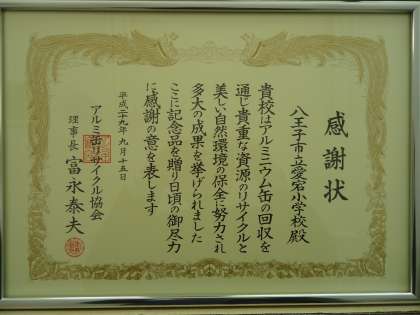 感謝状
八王子市立愛宕小学校殿
貴校はアルミニウム缶の回収を
通じ貴重な資源のリサイクルと
美しい自然環境の保全に努力され
多大の成果を挙げられました
ここに記念品を贈り日頃の御尽力
に感謝の意を表します
平成二十九年九月十五日
アルミ缶リサイクル協会
理事長 富永泰夫